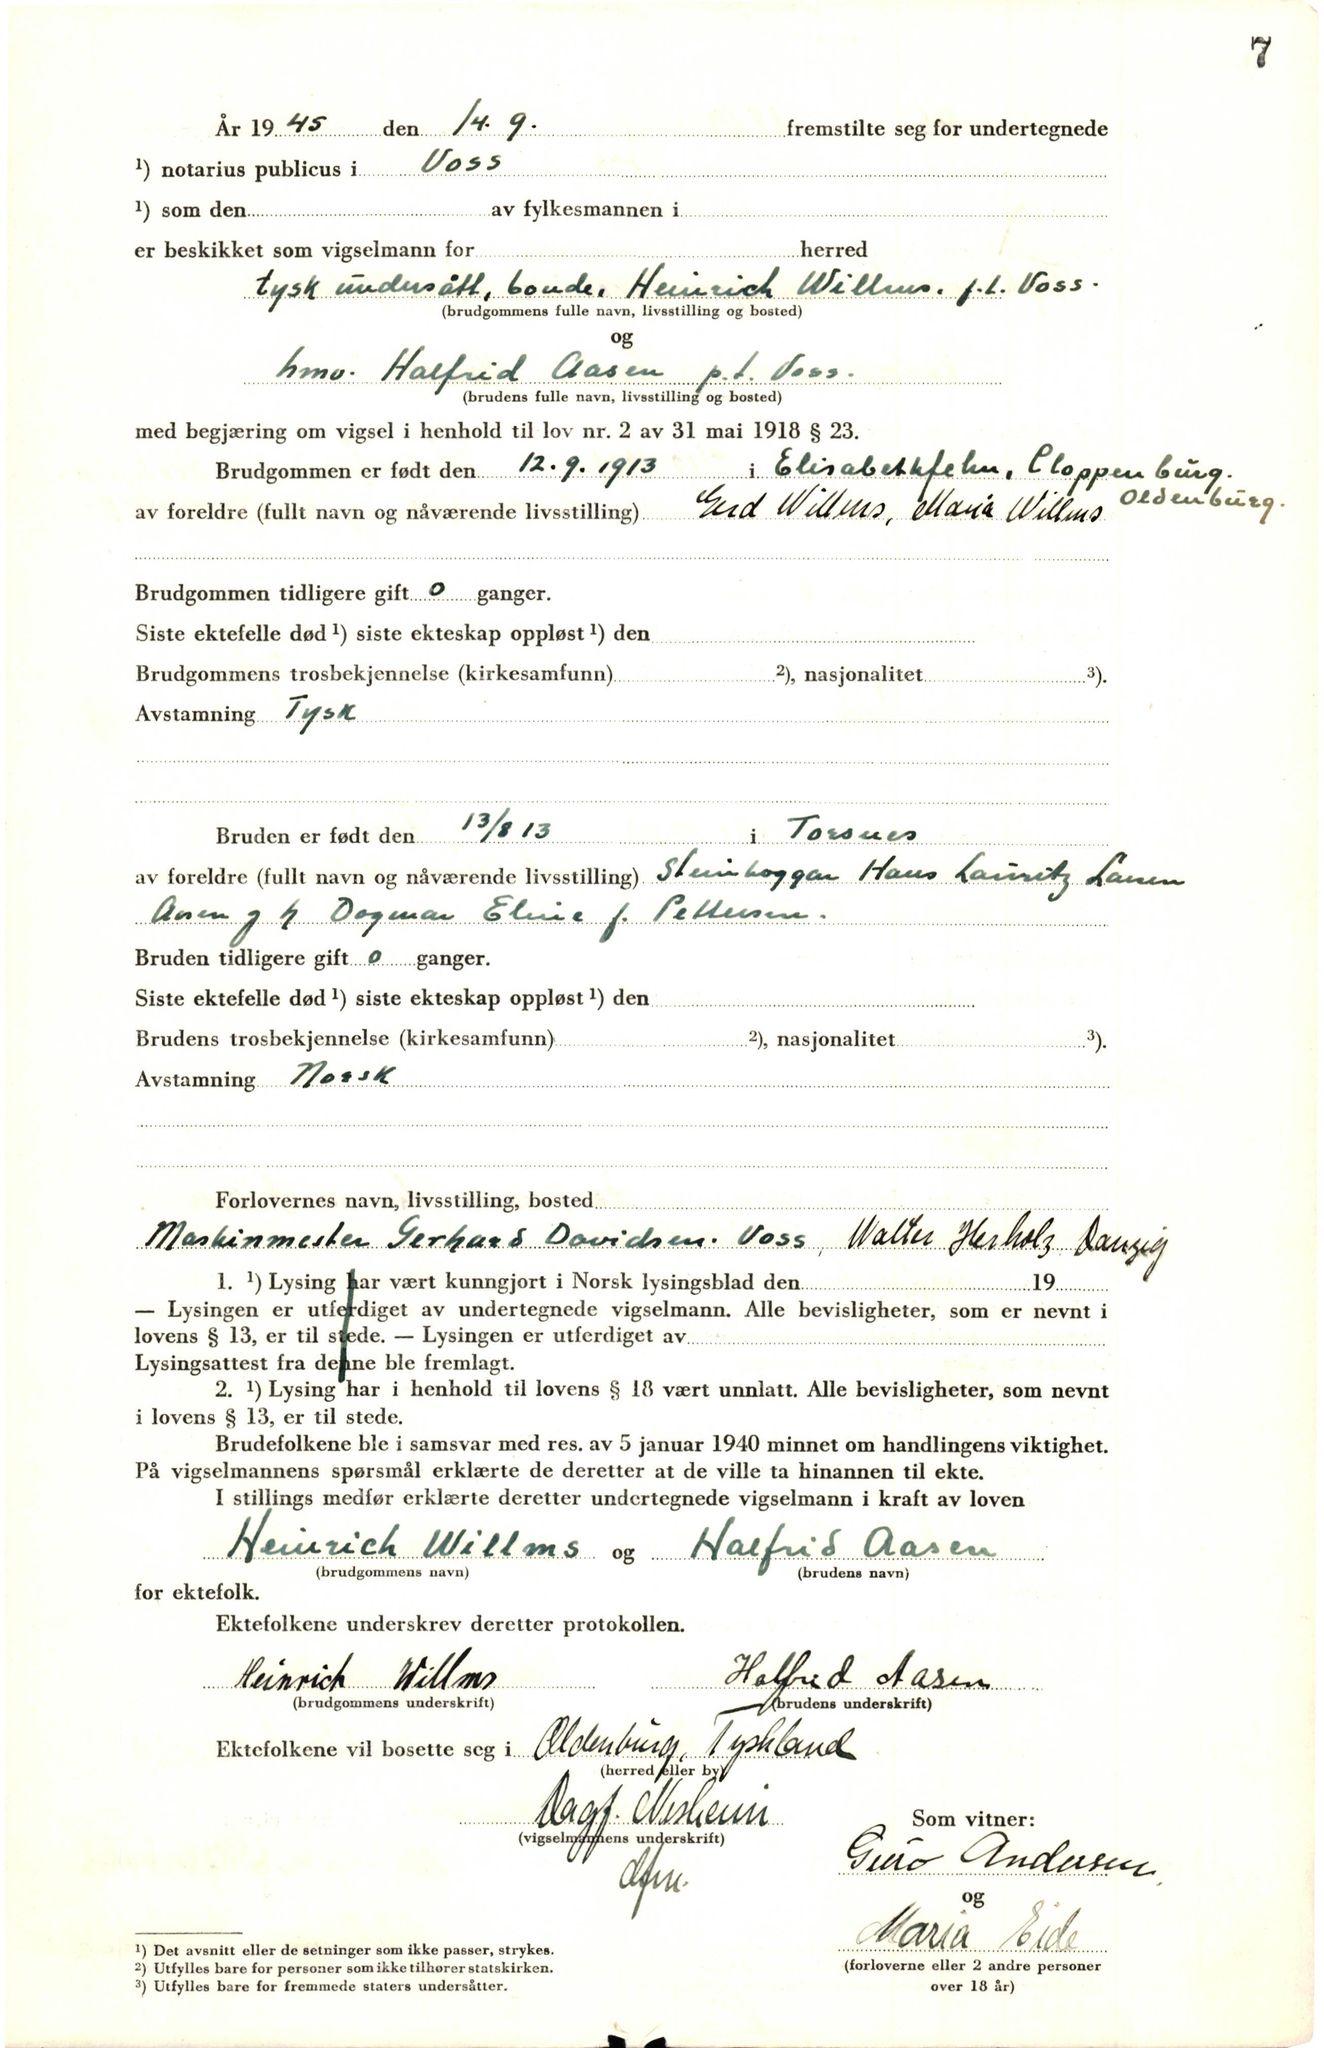 7
År 19 45 den 14. 9. fremstilte seg for undertegnede
¹) notarius publicus i Voss
¹) som den av fylkesmannen i
er beskikket som vigselmann for herred
tysk undersått, bonde, Heinrich Willms. p.t. Voss.
(brudgommens fulle navn, livsstilling og bosted)
og
hmv. Halfrid Aasen p.t. Voss.
(brudens fulle navn, livsstilling og bosted)
med begjæring om vigsel i henhold til lov nr. 2 av 31 mai 1918 § 23.
Brudgommen er født den 12. 9. 1913 i Elisabethfehn, Cloppenburg.
Oldenburg.
av foreldre (fullt navn og nåværende livsstilling) Gerd Willms, Maria Willms
Brudgommen tidligere gift 0 ganger.
Siste ektefelle død ¹) siste ekteskap oppløst ¹) den
Brudgommens trosbekjennelse (kirkesamfunn) ²), nasjonalitet ³).
Avstamning Tysk
Bruden er født den 13/8 13 i Torsnes
av foreldre (fullt navn og nåværende livsstilling) Steinhoggar Hans Lauritz Larsen
Aasen og h Dagmar Eline f. Pettersen.
Bruden tidligere gift 0 ganger.
Siste ektefelle død ¹) siste ekteskap oppløst ¹) den
Brudens trosbekjennelse (kirkesamfunn) ²), nasjonalitet ³).
Avstamning Norsk
Forlovernes navn, livsstilling, bosted
Maskinmester Gerhard Davidsen. Voss, Walter Herholz Danzig
1. ¹) Lysing har vært kunngjort i Norsk lysingsblad den 19
— Lysingen er utferdiget av undertegnede vigselmann. Alle bevisligheter, som er nevnt i
lovens § 13, er til stede. — Lysingen er utferdiget av
Lysingsattest fra denne ble fremlagt.
2. ¹) Lysing har i henhold til lovens § 18 vært unnlatt. Alle bevisligheter, som nevnt
i lovens § 13, er til stede.
Brudefolkene ble i samsvar med res. av 5 januar 1940 minnet om handlingens viktighet.
På vigselmannens spørsmål erklærte de deretter at de ville ta hinannen til ekte.
I stillings medfør erklærte deretter undertegnede vigselmann i kraft av loven
Heinrich Willms og Halfrid Aasen
(brudgommens navn) (brudens navn)
for ektefolk.
Ektefolkene underskrev deretter protokollen.
Heinrich Willms Halfrid Aasen
(brudgommens underskrift) (brudens underskrift)
Ektefolkene vil bosette seg i Oldenburg, Tyskland
(herred eller by)
Dagf. Nesheim
(vigselmannens underskrift)
dfm.
Som vitner:
Guro Andersen
og
Maria Eide
(forloverne eller 2 andre personer
over 18 år)
¹) Det avsnitt eller de setninger som ikke passer, strykes.
²) Utfylles bare for personer som ikke tilhører statskirken.
³) Utfylles bare for fremmede staters undersåtter.